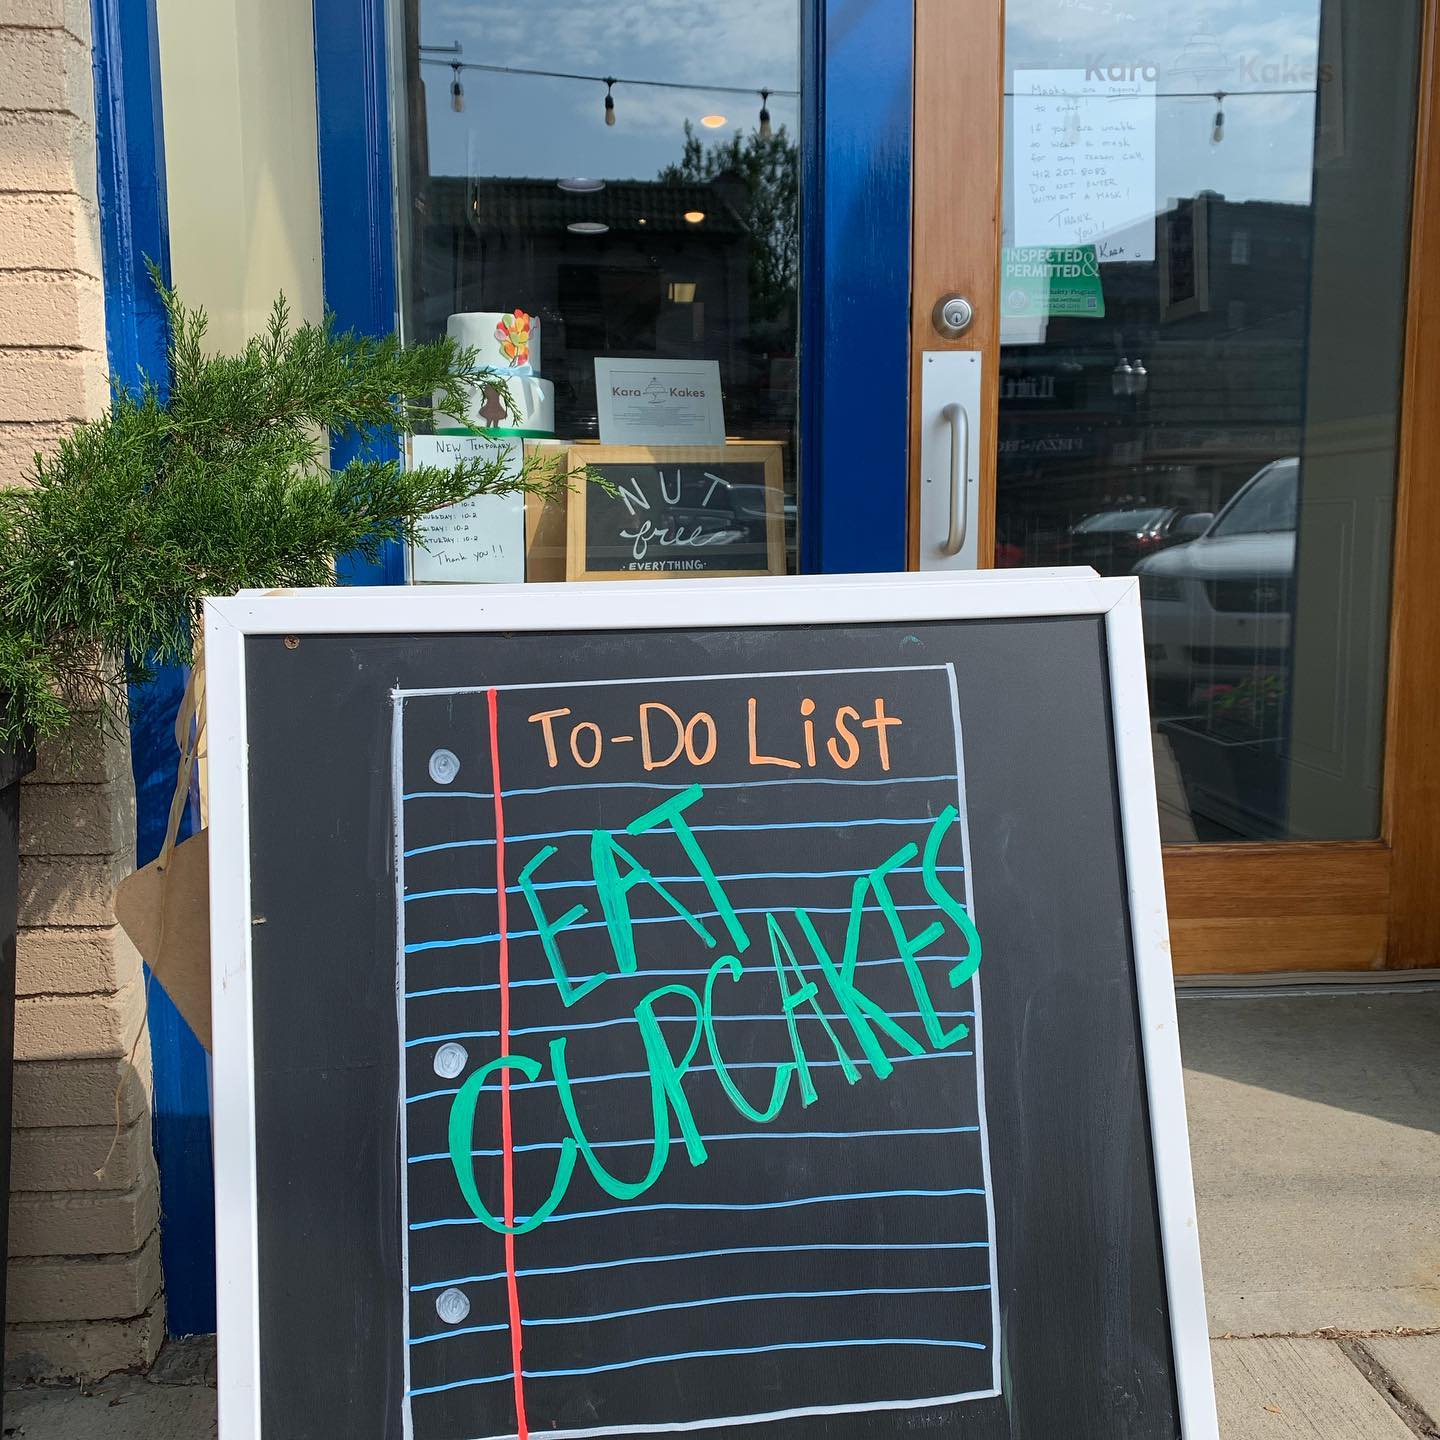 Kara Kakes
Masks are required
to enter!
If you are unable
to wear a mask
for any reason call
412 207 8083
DO NOT ENTER
WITHOUT A MASK!
THANK
YOU!!
KARA
INSPECTED &
PERMITTED
Kara Kakes
NEW TEMPORARY
THURSDAY: 10-2
FRIDAY: 10-2
SATURDAY: 10-2
Thank you!!
NUT
free
EVERYTHING
To-Do List
EAT
CUPCAKES